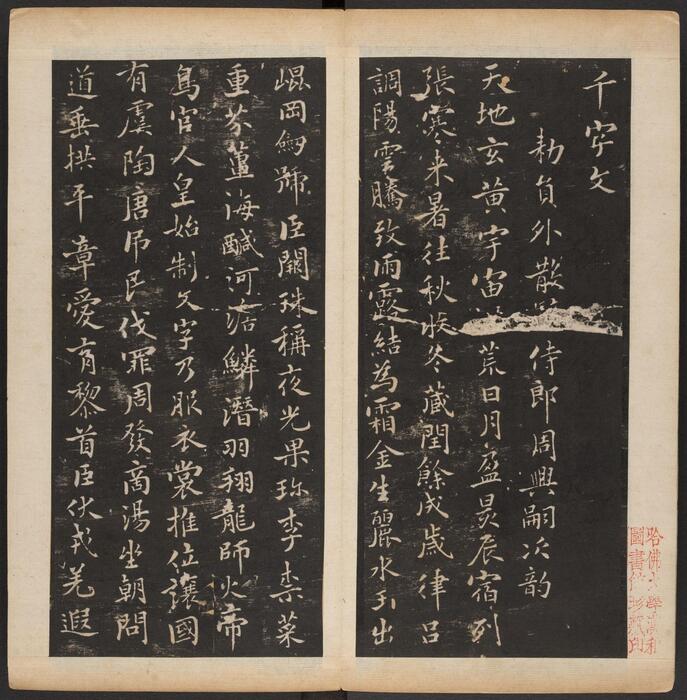 千字文
勅員外散 侍郎周興嗣次韵
天地玄黄宇宙 荒日月盈昃辰宿列
張寒来暑往秋收冬藏閏餘成歲律呂
調陽雲騰致雨露結為霜金生麗水玉出
崐岡劒號臣闕珠稱夜光果珍李柰菜
重芥薑海鹹河淡鱗潛羽翔龍師火帝
鳥官人皇始制文字乃服衣裳推位讓國
有虞陶唐吊民伐罪周發商湯坐朝問
道垂拱平章愛育黎首臣伏戎羌遐
哈佛大學漢和
圖書館 藏印